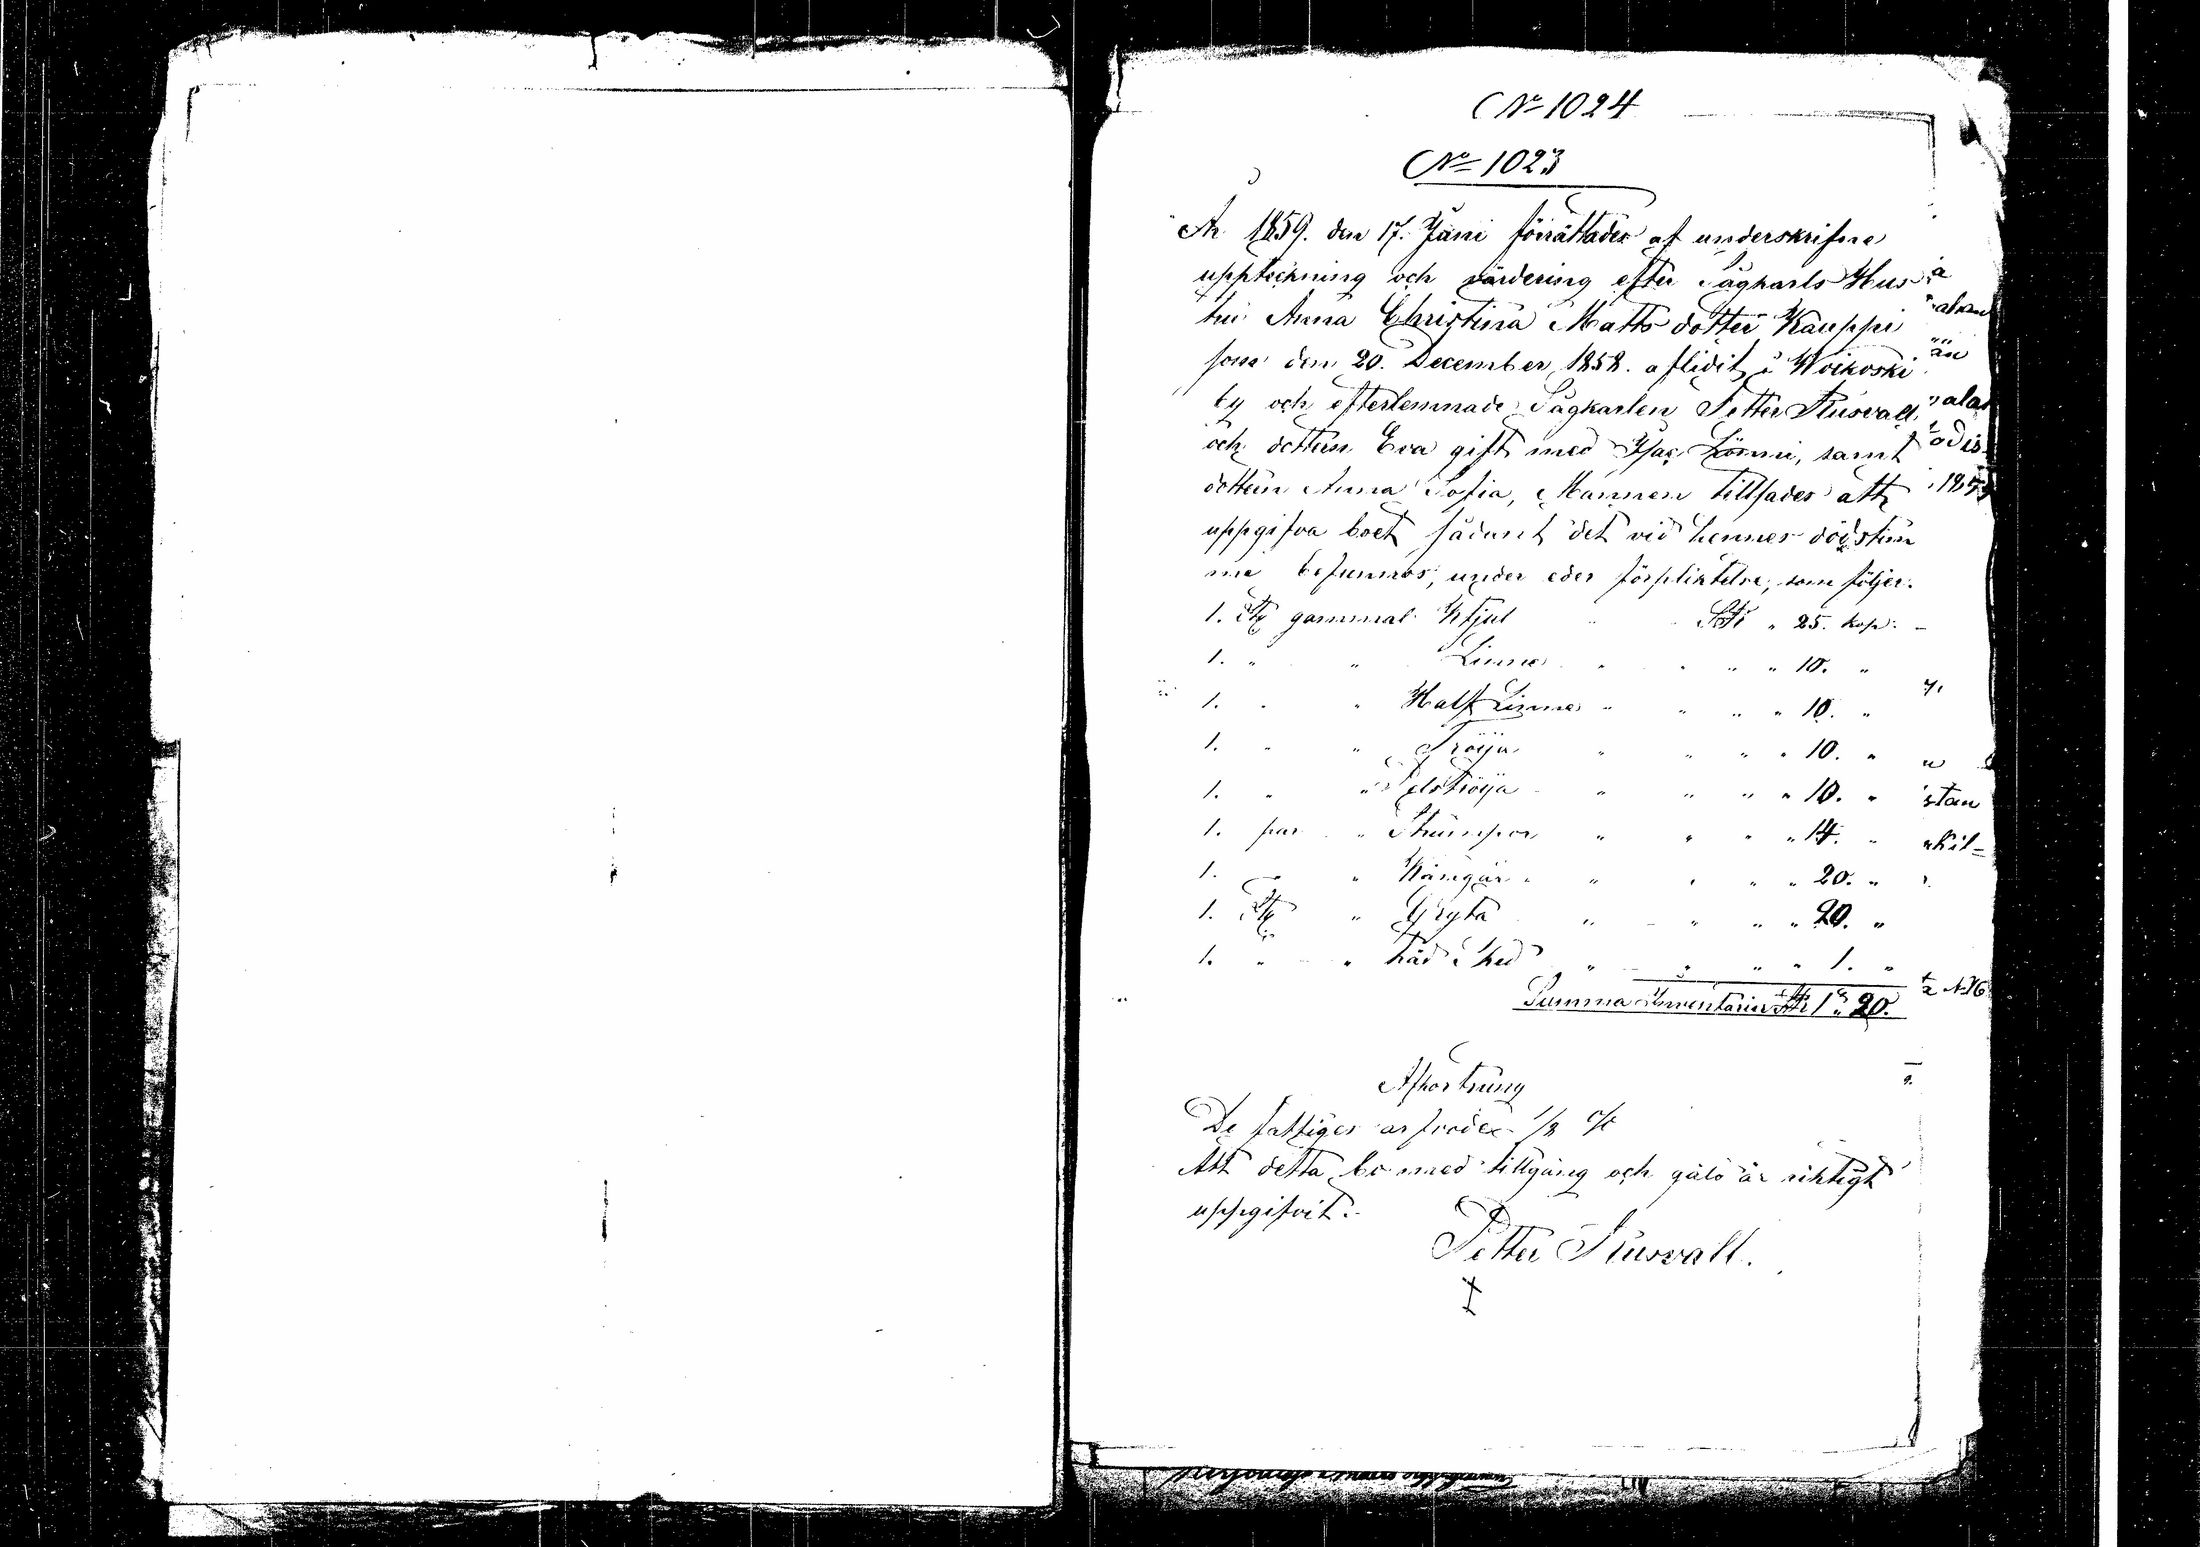 No 1024
No 1023
År 1859. den 17. Juni förrättades af underskrifne
uppteckning och värdering efter Sågkarls Hus
tru Anna Christina Matts dotter Kauppi
som den 20. December 1858. aflidit i Woikoski
by och efterlemnade Sågkarlen Petter Stusvall
och dottern Eva gift med Isac Lönni, samt
dottern Anna Sofia, Mannen tillsades att
uppgifva boet sådant det vid hennes dödstim
me befunnos, under edes förpliktelse, som följer.
1. Stk gammal Kjul SRi " 25. kop: -
1. " " Linne " " " " 10. "
1. " " Half Linne " " " " 10. "
1. " " Tröija " " " " 10. "
1. " " Pelströija " " " " 10. "
1. par " Strumpor " " " " 14. "
1. " " Kängär " " " " 20. "
1. Stk " Gryta " " " " 20. "
1. " " " " " " 1. "
Summa Inventarier SRi 1 " 20.
Afkortning
De fattiges 1/8 %
Att detta bo med tillgång och gäld är riktigt
uppgifvit.
Petter Stusvall.